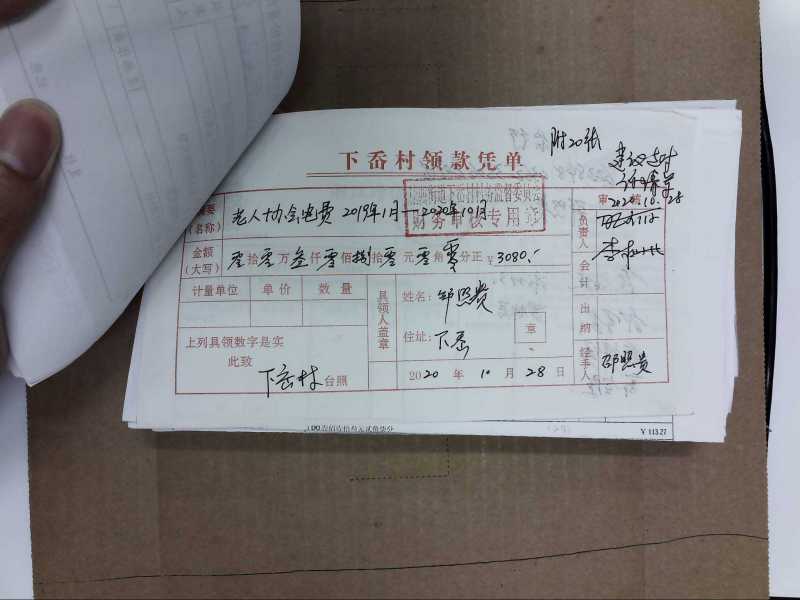 附20张
下岙村领款凭单
建议支付
2020.10.28
摘要
(名称)
老人协会电费 2019年1月—2020年10月
财务审核专用章
审核
金额
(大写)
零拾零万叁仟零佰捌拾零元零角零分正¥3080.-
计量单位 单价 数量
具领人盖章
姓名:邹照贵
住址:下岙
章
上列具领数字是实
此致
下岙村台照
2020年10月28日
负责人
会计
出纳
经手人
邵照贵
Y 113.27